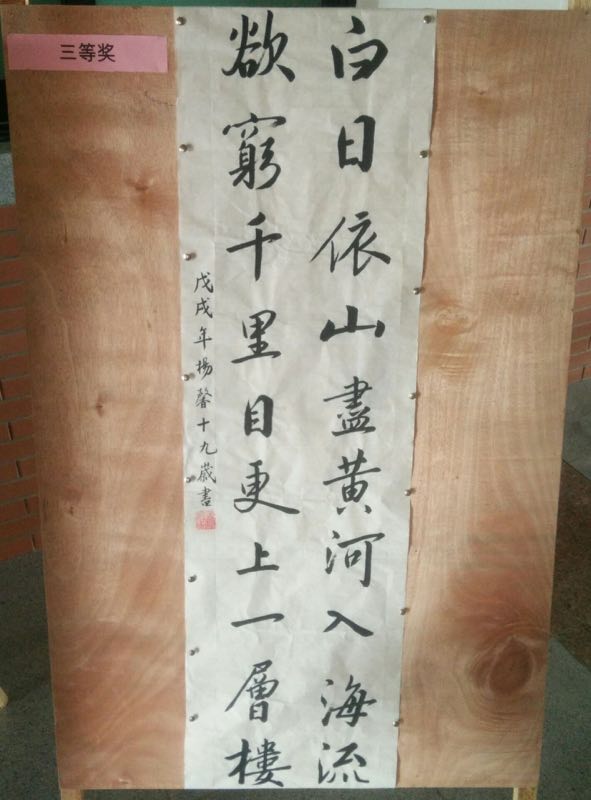 三等奖
白日依山盡黄河入海流
欲窮千里目更上一層樓
戊戌年楊馨十九歲書